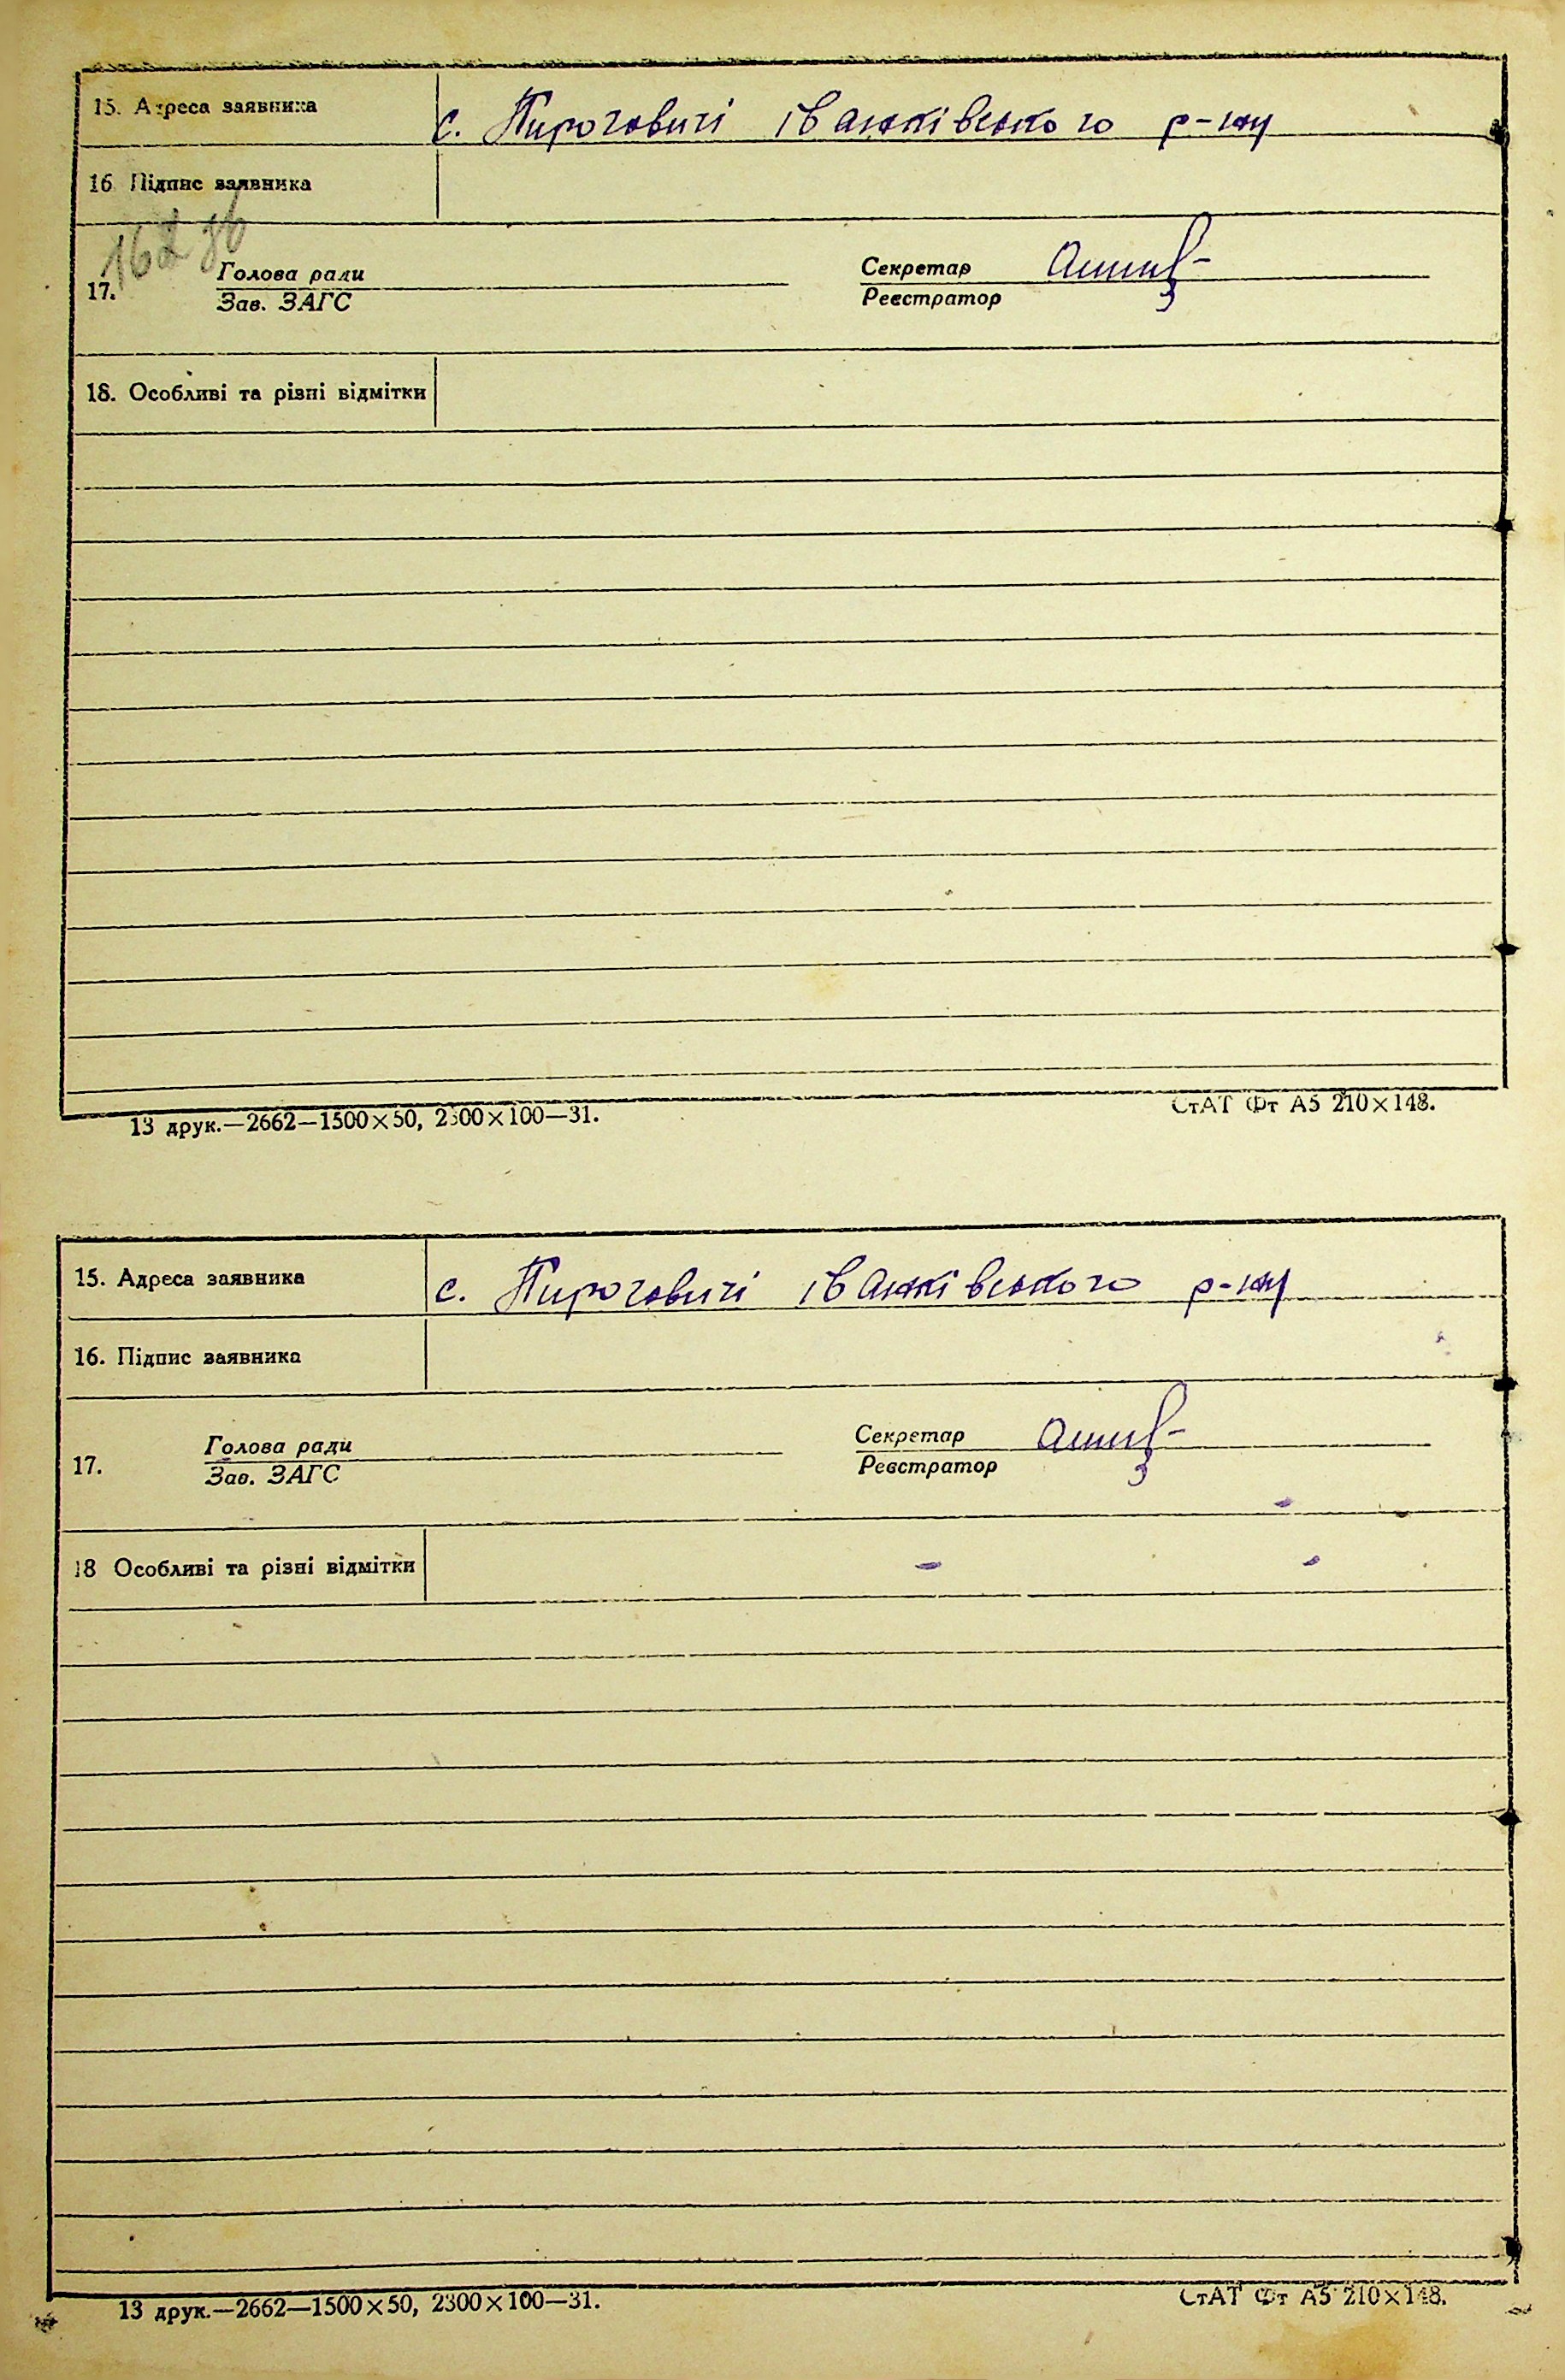 15. Адреса заявника с. Пироговичі іванківського р-ну
16 Підпис заявника
162 зв
Голова ради Секретар
17.
Зав. ЗАГС Реєстратор
18. Особливі та різні відмітки
13 друк.—2662—1500×50, 2300×100—31. СтАТ Фт А5 210×148.
15. Адреса заявника с. Пироговичі іванківського р-ну
16. Підпис заявника
Голова ради Секретар
17.
Зав. ЗАГС Реєстратор
18 Особливі та різні відмітки
13 друк.—2662—1500×50, 2300×100—31. СтАТ Фт А5 210×148.